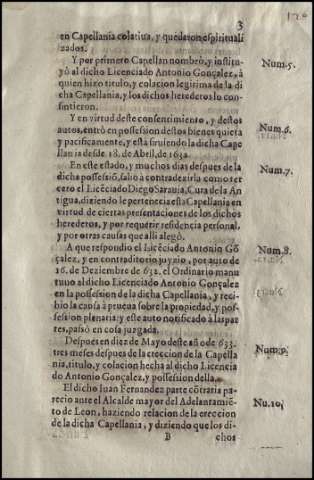 3
en Capellania colatiua, y quedaron espirituali
zados.
Y por primero Capellan nombrò, y institu-
yò al dicho Licenciado Antonio Gonçalez, à
quien hizo titulo, y colacion legitima de la di
cha Capellania, y los dichos herederos lo con-
sintieron.
Num.5.
Y en virtud deste consentimiento, y destos
autos, entrò en possession destos bienes quieta
y pacificamente, y està siruiendo la dicha Cape
llania desde 18. de Abril, de 1632.
Num.6.
En este estado, y muchos dias despues de la
dicha possessiõ, saliò à contradezirla como ter
cero el Licẽciado Diego Sarauia, Cura de la An
tigua, diziendo le pertenecia esta Capellania en
virtud de ciertas presentaciones de los dichos
herederos, y por requerir residencia personal,
y por otras causas que alli alegò.
Num.7.
A que respondio el Licẽciado Antonio Gõ
çalez, y en contraditorio juyzio, por auto de
16. de Deziembre de 632. el Ordinario manu
tuuo al dicho Licenciado Antonio Gonçalez
en la possession de la dicha Capellania, y reci-
bio la causa à prueua sobre la propiedad, y pos-
session plenaria: y este auto notificado à las par
tes, passò en cosa juzgada.
Num.8.
Despues en diez de Mayo deste año de 633.
tres meses despues de la creccion de la Capella
nia, titulo, y colacion hecha al dicho Licencia
do Antonio Gonçalez, y possession della,
Num.9.
El dicho Iuan Fernandez parte cõtraria pa-
recio ante el Alcalde mayor del Adelantamiẽ-
to de Leon, haziendo relacion de la ereccion
de la dicha Capellania, y diziendo que los di-
Nu.10.
B
chos